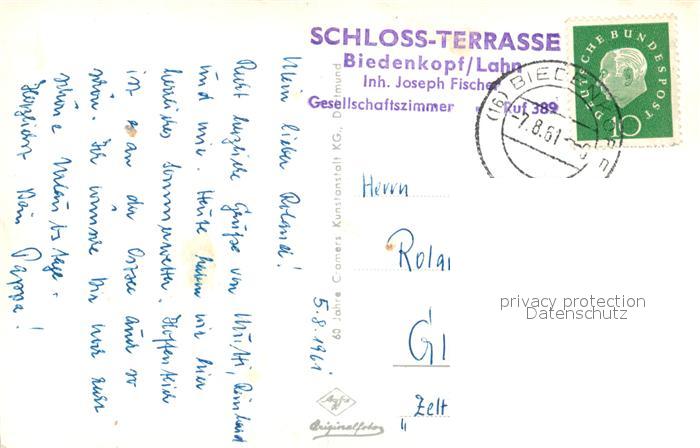 Mein lieber Roland!
Recht herzliche Grüße von Mutti, Reinhard
und mir. Heute haben wir hier
herrliches Sommerwetter. Hoffentlich
ist es an der Ostsee auch so
schön. Ich wünsche Dir noch recht
schöne Urlaubstage.
Herzlichst Dein Pappa!
5.8.1961
60 Jahre Cramers Kunstanstalt KG., Dortmund
SCHLOSS-TERRASSE
Biedenkopf/Lahn
Inh. Joseph Fischer
Gesellschaftszimmer • Ruf 389
DEUTSCHE BUNDESPOST
10
(16) BIEDENKOPF
-7.8.61
Herrn
Rolan
Gl
" Zelt
Agfa
Originalfoto
privacy protection
Datenschutz